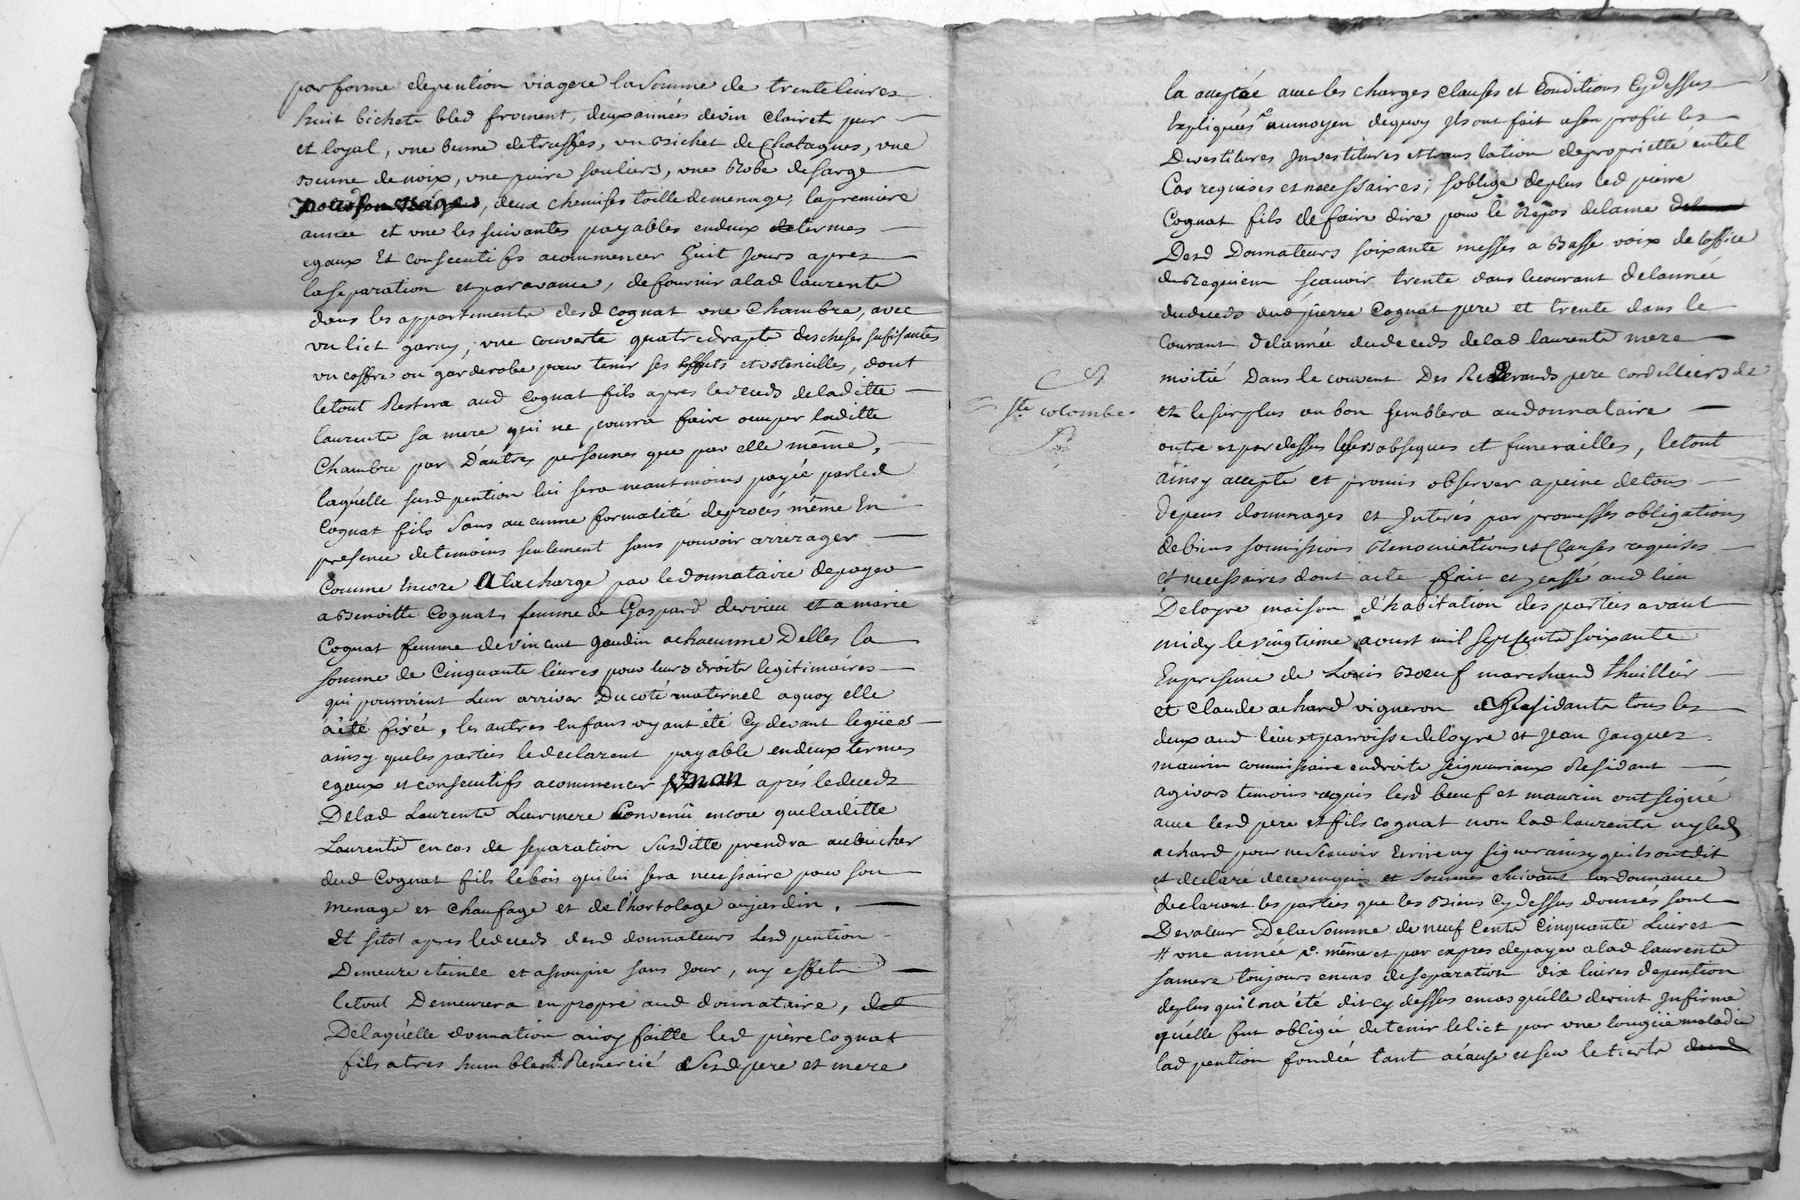 par forme depention viagere la somme de trente livres
huit bichets bled froment, deux années devin clairet pur
et loyal, une benne de truffes, un Bichet de Chataques, une
Benne de noix, une paire souliers, une Robe de sarge
pour son usage, deux chemises toille demenage, la premiere
année et une les suivantes payables endeux termes
egaux Et consecutifs acommencer huit Jours apres
la separation et par avance, de fournir alad laurente
dans les appartements desd cognat une chambre, avec
un lict garny, une couverte quatre draps des cheses sufisantes
un coffre ou garderobe pour tenir ses effets et ustencilles, dont
letout Restera aud Cognat fils apres ledeceds deladitte
laurente sa mere qui ne pourra faire ocuper laditte
Chambre par D'autres personnes que par elle même,
laquelle susd pention lui sera neantmoins payée parled
Cognat fils sans aucunne formalité deprocés même En
presence de temoins seulement sans pouvoir arrerager
Comme Encore A la charge par le donnataire depayer
a Benoitte Cognat femme de Gaspard dervieu et a marie
Cognat femme de vincent gaudin achacunne Delles la
somme de Cinquante livres pour leurs droits legitimaires
qui pourroient leur arriver Ducoté maternel aquoy elle
a été fixée, les autres enfans ayant été Cy devant legüées
ainsy que les parties le declarent payable endeux termes
egaux et consecutifs acommencer un an aprés ledeceds
Delad Laurente Leur mere Convenû encore queladitte
Laurente en cas de separation Susditte prendra au bucher
dud Cognat fils le bois qui lui sera necessaire pour son
menage et chaufage et de l'hortolage aujardin.
Et sitot apres ledeceds desd donnateurs Lesd pention
Demeure eteinte et assoupie sans Jour, ny effets
letout Demeurera en propre aud donnataire,
De laquelle donnation ainsy faitte led pierre Cognat
fils a tres humblemt. Remercié Sesd pere et mere
la acceptée avec les charges clauses et Conditions Cydessus
Expliquées aumoyen dequoy Ils ont fait a son profit les
Devestitures Investitures et translation de proprietté entel
Cas requises et necessaires; soblige deplus led pierre
Cognat fils de faire dire pour le Repos delame
Desd Donnateurs soixante messes a Basse voix de loffice
de Requiem scavoir trente dans lecourant delannée
dudeceds dud pierre Cognat pere et trente dans le
Courant delannée dudeceds delad laurente mere
moitié Dans le couvent Des Reverands pere Cordelliers de
Ste colombe
et le surplus ou bon semblera audonnataire
outre et par dessus leurs obseques et funerailles, letout
ainsy accepté et promis observer a peine detous
depens dommages et Interés par promesses obligations
de biens soumissions Renonciations et Clauses requises
et necessaires dont acte fait et passé aud lieu
Deloyre maison d'habitation des parties avant
midy le vingtieme aoust mil sept cents soixante
En presence de Louis Boeuf marchand thuillier
et Claude achard vigneron Residants tous les
deux aud lieu et parroisse deloyre et Jean Jacques
maurin commissaire endroits seigneuriaux Residant
agivors temoins requis lesd boeuf et maurin ont signé
avec lesd pere et fils cognat non lad laurente ny led
achard pour ne Scavoir Ecrire ny signer ainsy quils ont dit
et declaré dece enquis et sommes suivant lordonnance
declarant les parties que les Biens Cydessus donnés sont
Devaleur Dela Somme de neuf Cents Cinquante Livres
# une année &. même et par expres depayer alad laurente
samere toujours encas deseparation dix livres depention
deplus quil na été dit cy dessus encas quelle devint Infirme
quélle fut obligée de tenir lelict par une longüe maladie
lad pention fondée tant acause et sur le tierts